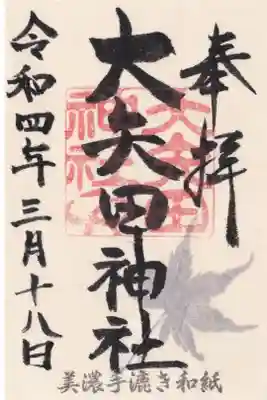 奉拝
大矢田神社
令和四年三月十八日
美濃手漉き和紙